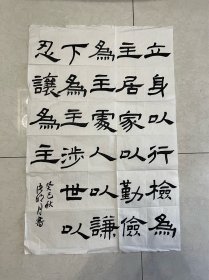 立身以行檢為
主居家以勤儉
為主處人以謙
下為主涉世以
忍讓為主
癸巳秋
月書